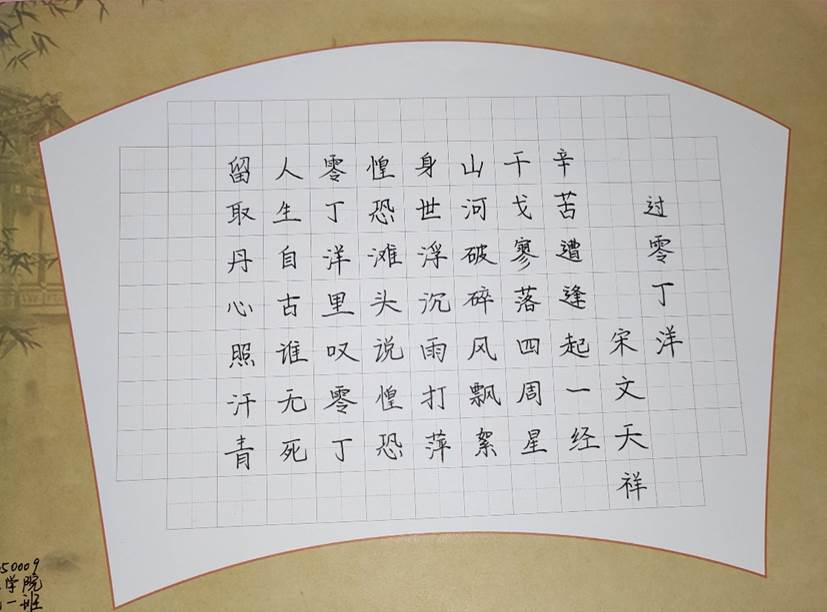 过零丁洋
宋文天祥
辛苦遭逢起一经
干戈寥落四周星
山河破碎风飘絮
身世浮沉雨打萍
惶恐滩头说惶恐
零丁洋里叹零丁
人生自古谁无死
留取丹心照汗青
50009
学院
一班